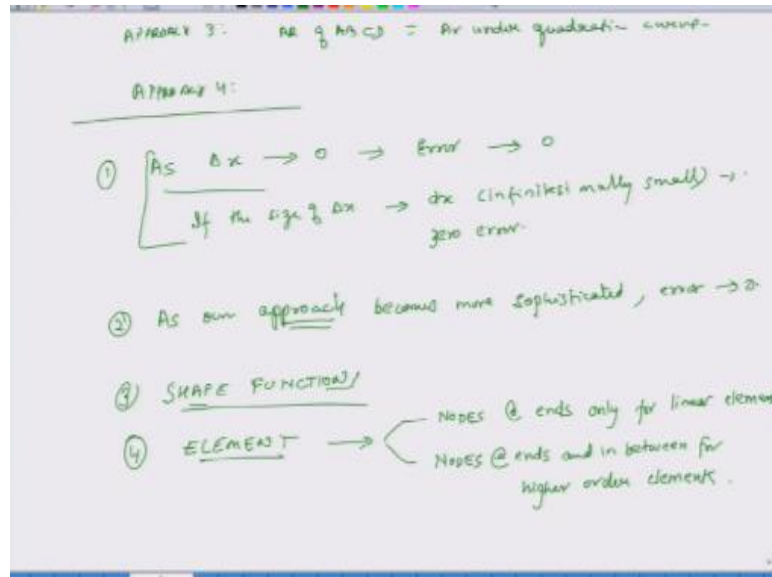 APPROACH 3: AR of ABCD = Ar under quadratic curve-
APPROACH 4:
① As Δx → 0 → Error → 0
If the size of Δx → dx (infinitesimally small) →
zero error.
② As our approach becomes more sophisticated, error → 0.
③ SHAPE FUNCTIONS
④ ELEMENT → NODES @ ends only for linear elemen
NODES @ ends and in between for
higher order elements.